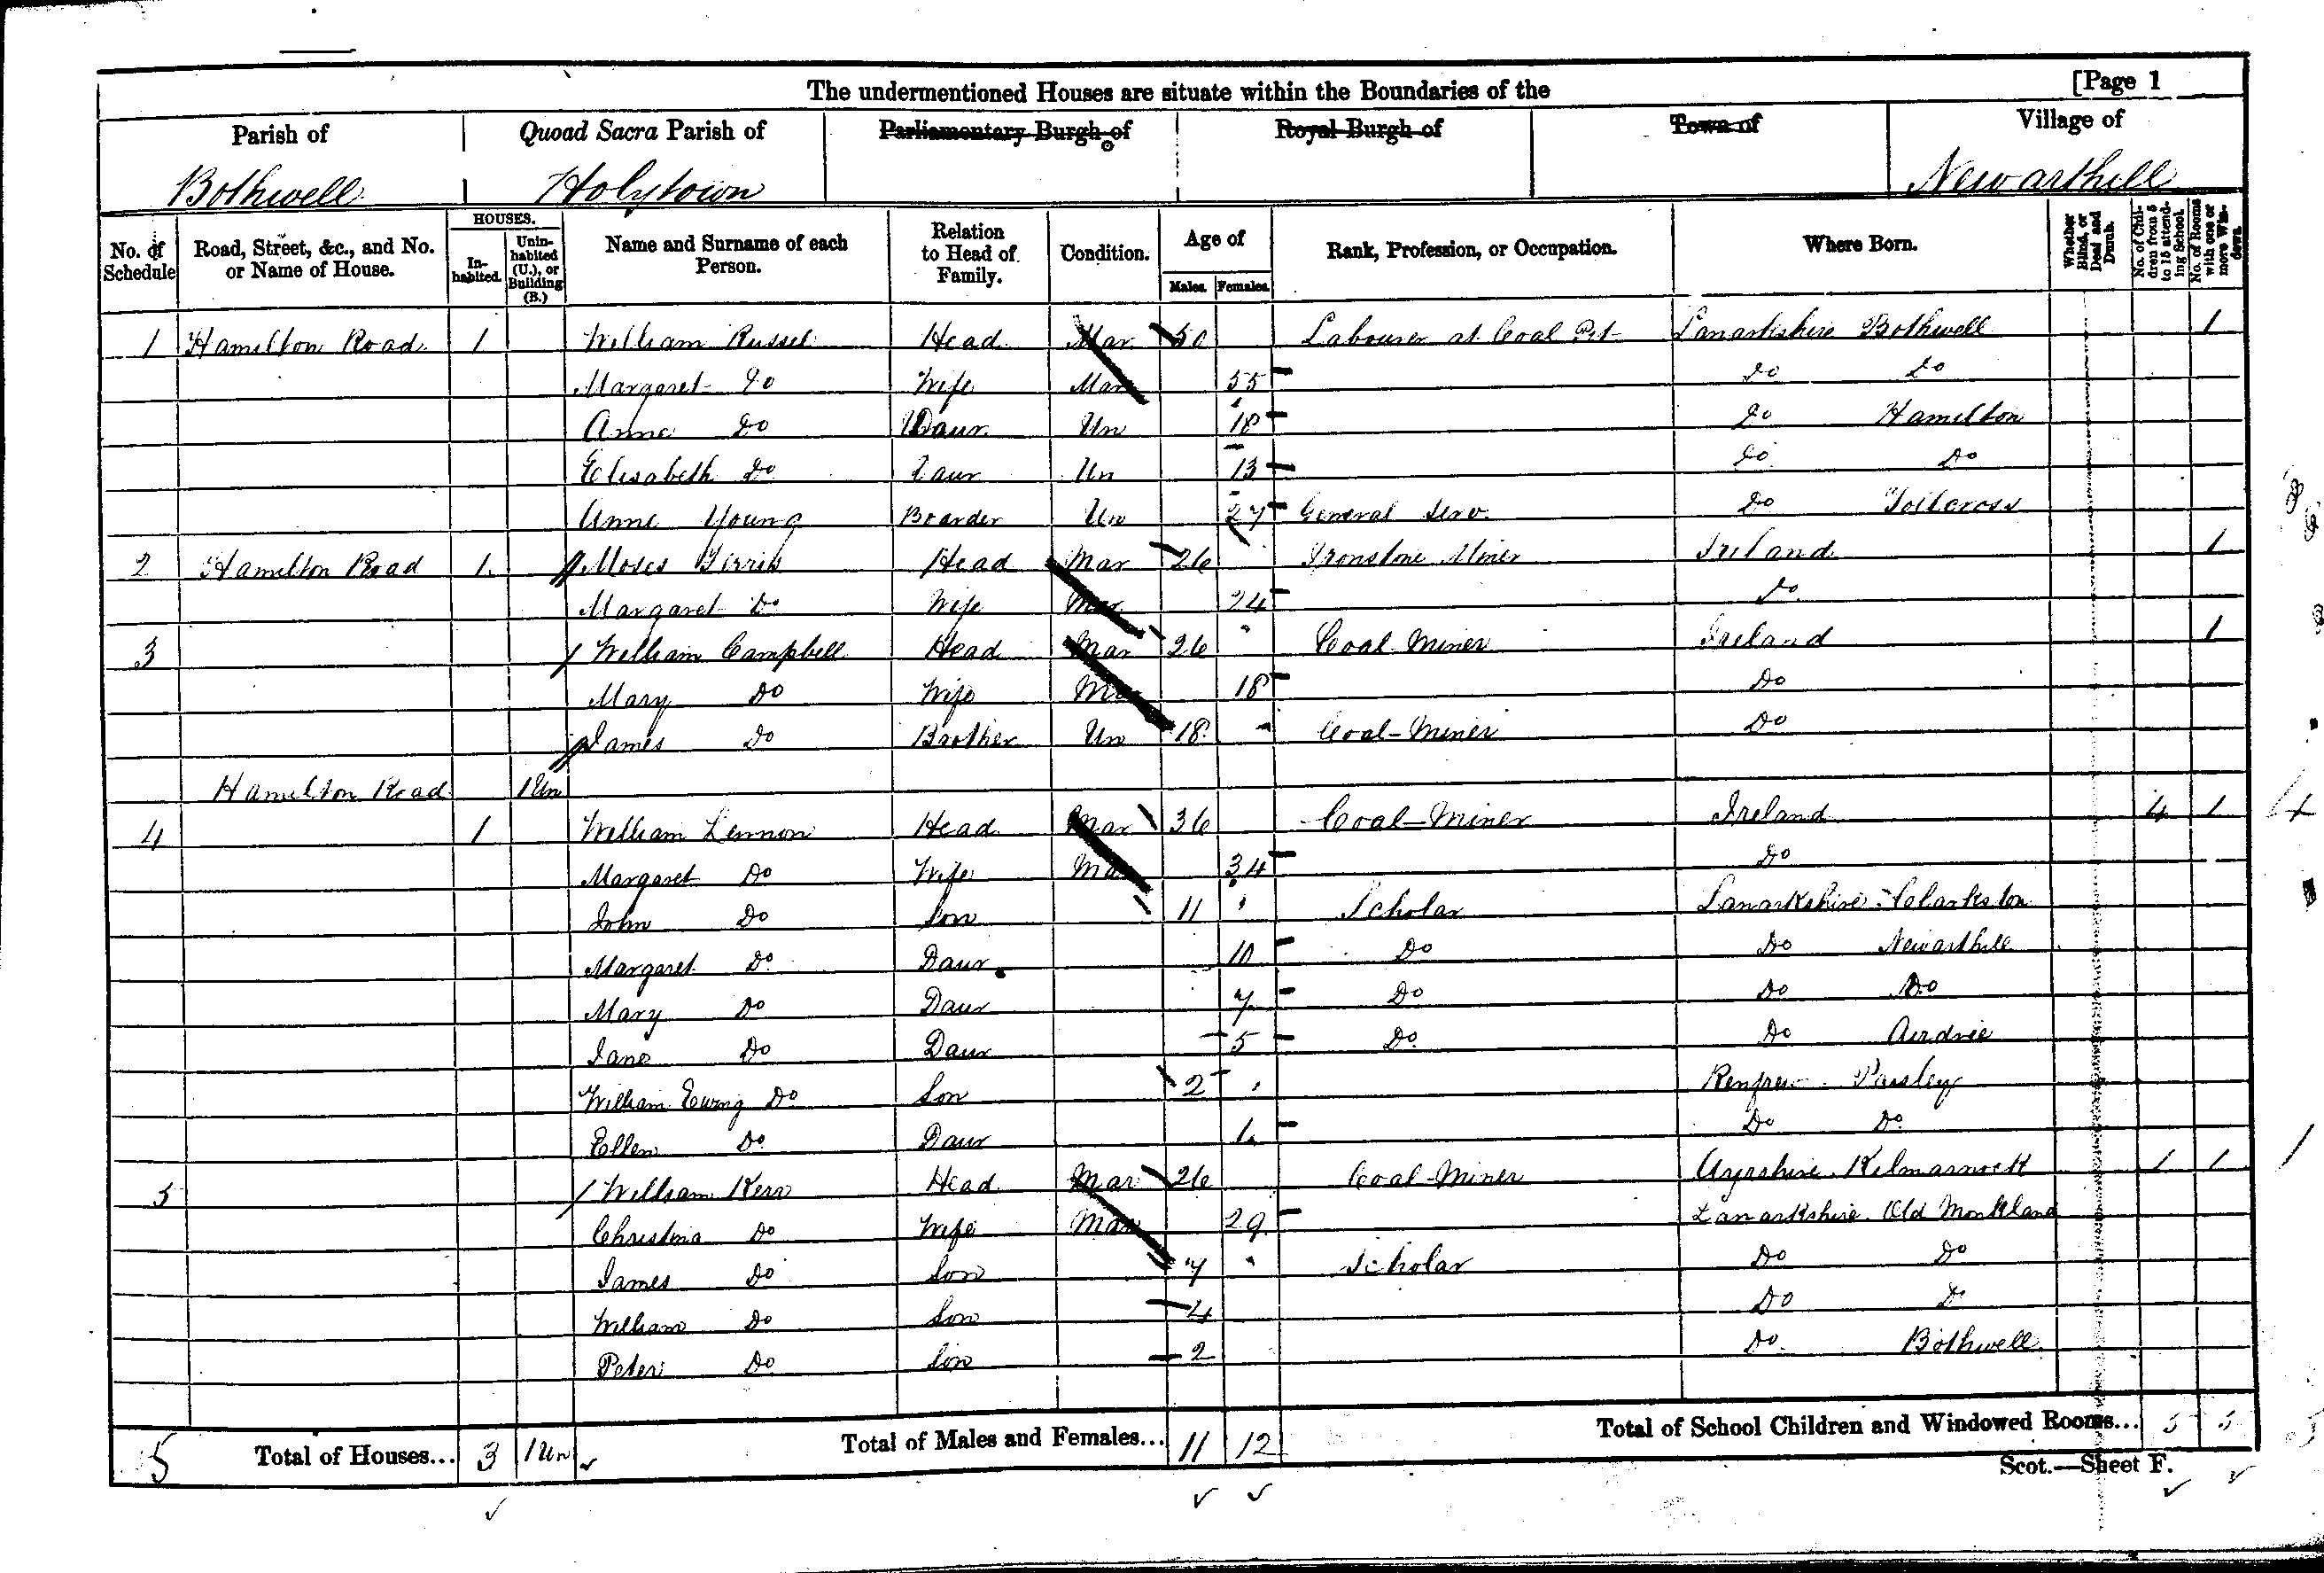 The undermentioned Houses are situate within the Boundaries of the [Page 1
Parish of Quoad Sacra Parish of Parliamentary Burgh of Royal Burgh of Town of Village of
Bothwell Holytown Newarthill
No. of Schedule Road, Street, &c., and No. or Name of House. HOUSES. In-habited. Unin-habited (U.), or Building (B.) Name and Surname of each Person. Relation to Head of Family. Condition. Age of Males. Females. Rank, Profession, or Occupation. Where Born. Whether Blind, or Deaf and Dumb. No. of Chil-dren from 5 to 15 attend-ing School. No. of Rooms with one or more Win-dows.
1 Hamilton Road 1 William Russel Head Mar 50 Labourer at Coal Pit Lanarkshire Bothwell 1
Margaret Do Wife Mar 55 Do Do
Anne Do Daur Un 18 Do Hamilton
Elisabeth Do Daur Un 13 Do Do
Anne Young Boarder Un 27 General Serv. Do Tollcross
2 Hamilton Road 1 Moses Head Mar 26 Ironstone Miner Ireland 1
Margaret Do Wife Mar 24 Do
3 William Campbell Head Mar 26 Coal Miner Ireland 1
Mary Do Wife Mar 18 Do
James Do Brother Un 18 Coal-Miner Do
Hamilton Road 1 Un
4 1 William Lennon Head Mar 36 Coal-Miner Ireland 4 1
Margaret Do Wife Mar 34 Do
John Do Son 11 Scholar Lanarkshire Clarkston
Margaret Do Daur 10 Do Do Newarthill
Mary Do Daur 7 Do Do Do
Jane Do Daur 5 Do Do Airdrie
William Ewing Do Son 2 Renfrew Paisley
Ellen Do Daur 1 Do Do
5 William Kerr Head Mar 26 Coal-Miner Ayrshire Kilmarnock 1 1
Christina Do Wife Mar 29 Lanarkshire Old Monkland
James Do Son 7 Scholar Do Do
William Do Son 4 Do Do
Peter Do Son 2 Do Bothwell
5 Total of Houses... 3 1 Un Total of Males and Females... 11 12 Total of School Children and Windowed Rooms... 5 5
Scot.—Sheet F.